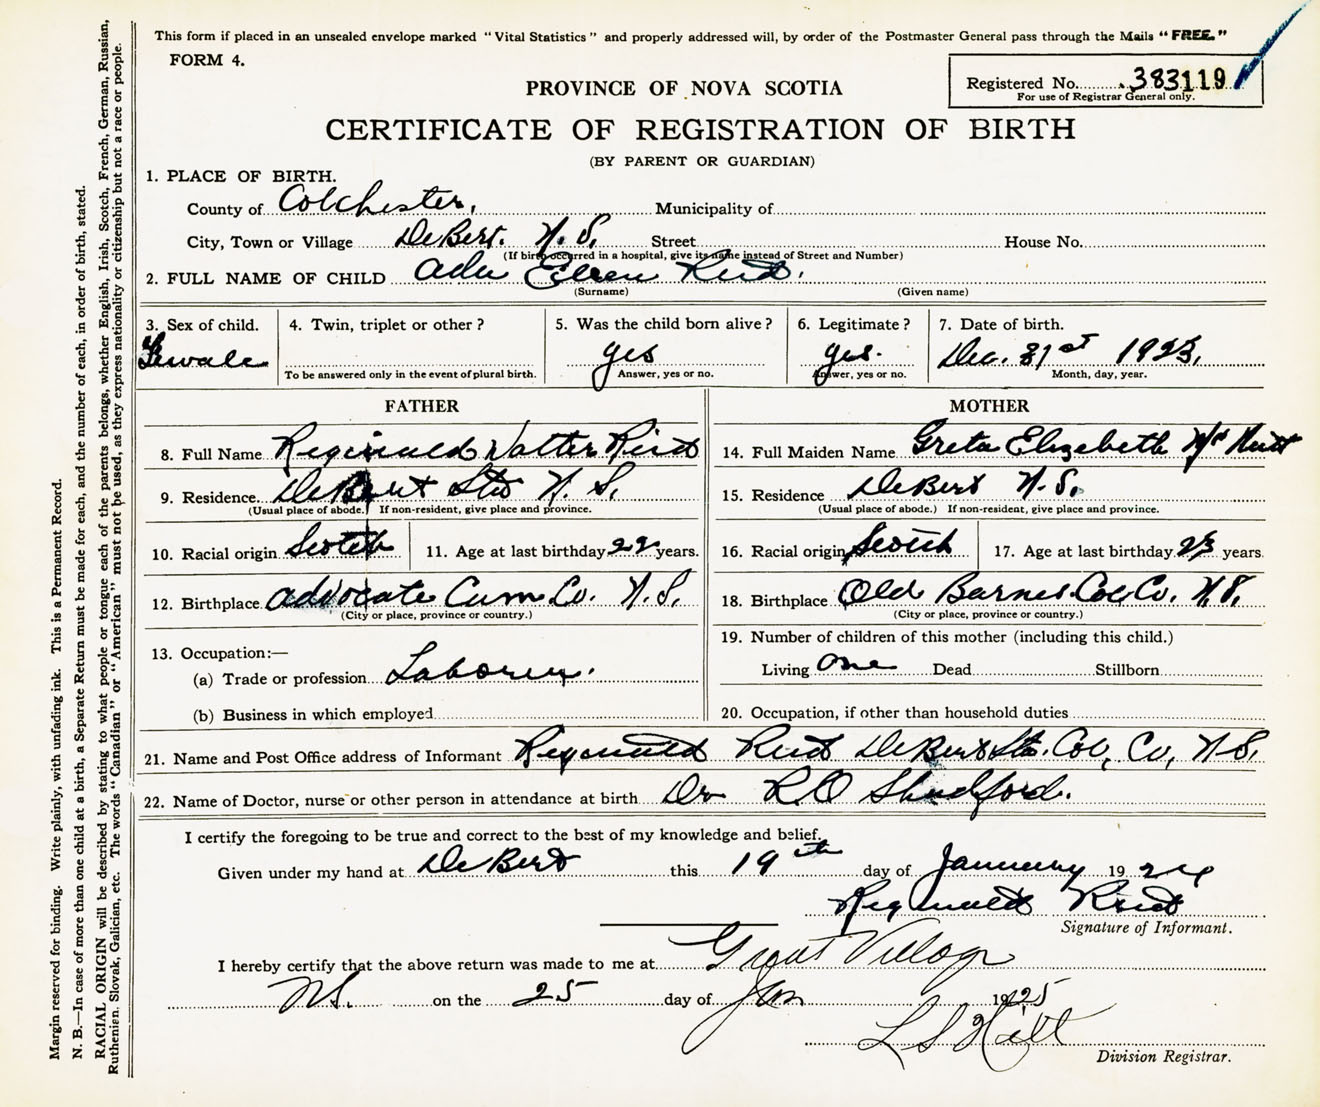 This form if placed in an unsealed envelope marked "Vital Statistics" and properly addressed will, by order of the Postmaster General pass through the Mails "FREE."
FORM 4.
Registered No. 383119
For use of Registrar General only.
PROVINCE OF NOVA SCOTIA
CERTIFICATE OF REGISTRATION OF BIRTH
(BY PARENT OR GUARDIAN)
1. PLACE OF BIRTH.
County of Colchester, Municipality of
City, Town or Village DeBert. N. S. Street House No.
(If birth occurred in a hospital, give its name instead of Street and Number)
2. FULL NAME OF CHILD Ada Eileen Reid.
(Surname) (Given name)
3. Sex of child. 4. Twin, triplet or other? 5. Was the child born alive? 6. Legitimate? 7. Date of birth.
Female yes yes. Dec. 31st 1923.
To be answered only in the event of plural birth. Answer, yes or no. Answer, yes or no. Month, day, year.
FATHER MOTHER
8. Full Name Reginald Walter Reid 14. Full Maiden Name Greta Elizabeth
9. Residence DeBert Sta N. S. 15. Residence DeBert N. S.
(Usual place of abode. If non-resident, give place and province. (Usual place of abode.) If non-resident, give place and province.
10. Racial origin Scotch 11. Age at last birthday 22 years. 16. Racial origin Scotch 17. Age at last birthday 23 years.
12. Birthplace Advocate Cum Co. N. S. 18. Birthplace Old Barnes Col Co. N. S.
(City or place, province or country.) (City or place, province or country.)
13. Occupation:— 19. Number of children of this mother (including this child.)
(a) Trade or profession Laborer. Living One Dead Stillborn
(b) Business in which employed 20. Occupation, if other than household duties
21. Name and Post Office address of Informant Reginald Reid DeBert Sta. Col, Co, N S.
22. Name of Doctor, nurse or other person in attendance at birth Dr R O Shatford.
I certify the foregoing to be true and correct to the best of my knowledge and belief.
Given under my hand at DeBert this 19th day of January 1924
Reginald Reid
Signature of Informant.
I hereby certify that the above return was made to me at Great Village
N.S. on the 25 day of Jan 1925
L S Hill
Division Registrar.
Margin reserved for binding. Write plainly, with unfading ink. This is a Permanent Record.
N. B.—In case of more than one child at a birth, a Separate Return must be made for each, and the number of each, in order of birth, stated.
RACIAL ORIGIN will be described by stating to what people or tongue each of the parents belongs, whether English, Irish, Scotch, French, German, Russian,
Ruthenian, Slovak, Galician, etc. The words "Canadian" or "American" must not be used, as they express nationality or citizenship but not a race or people.